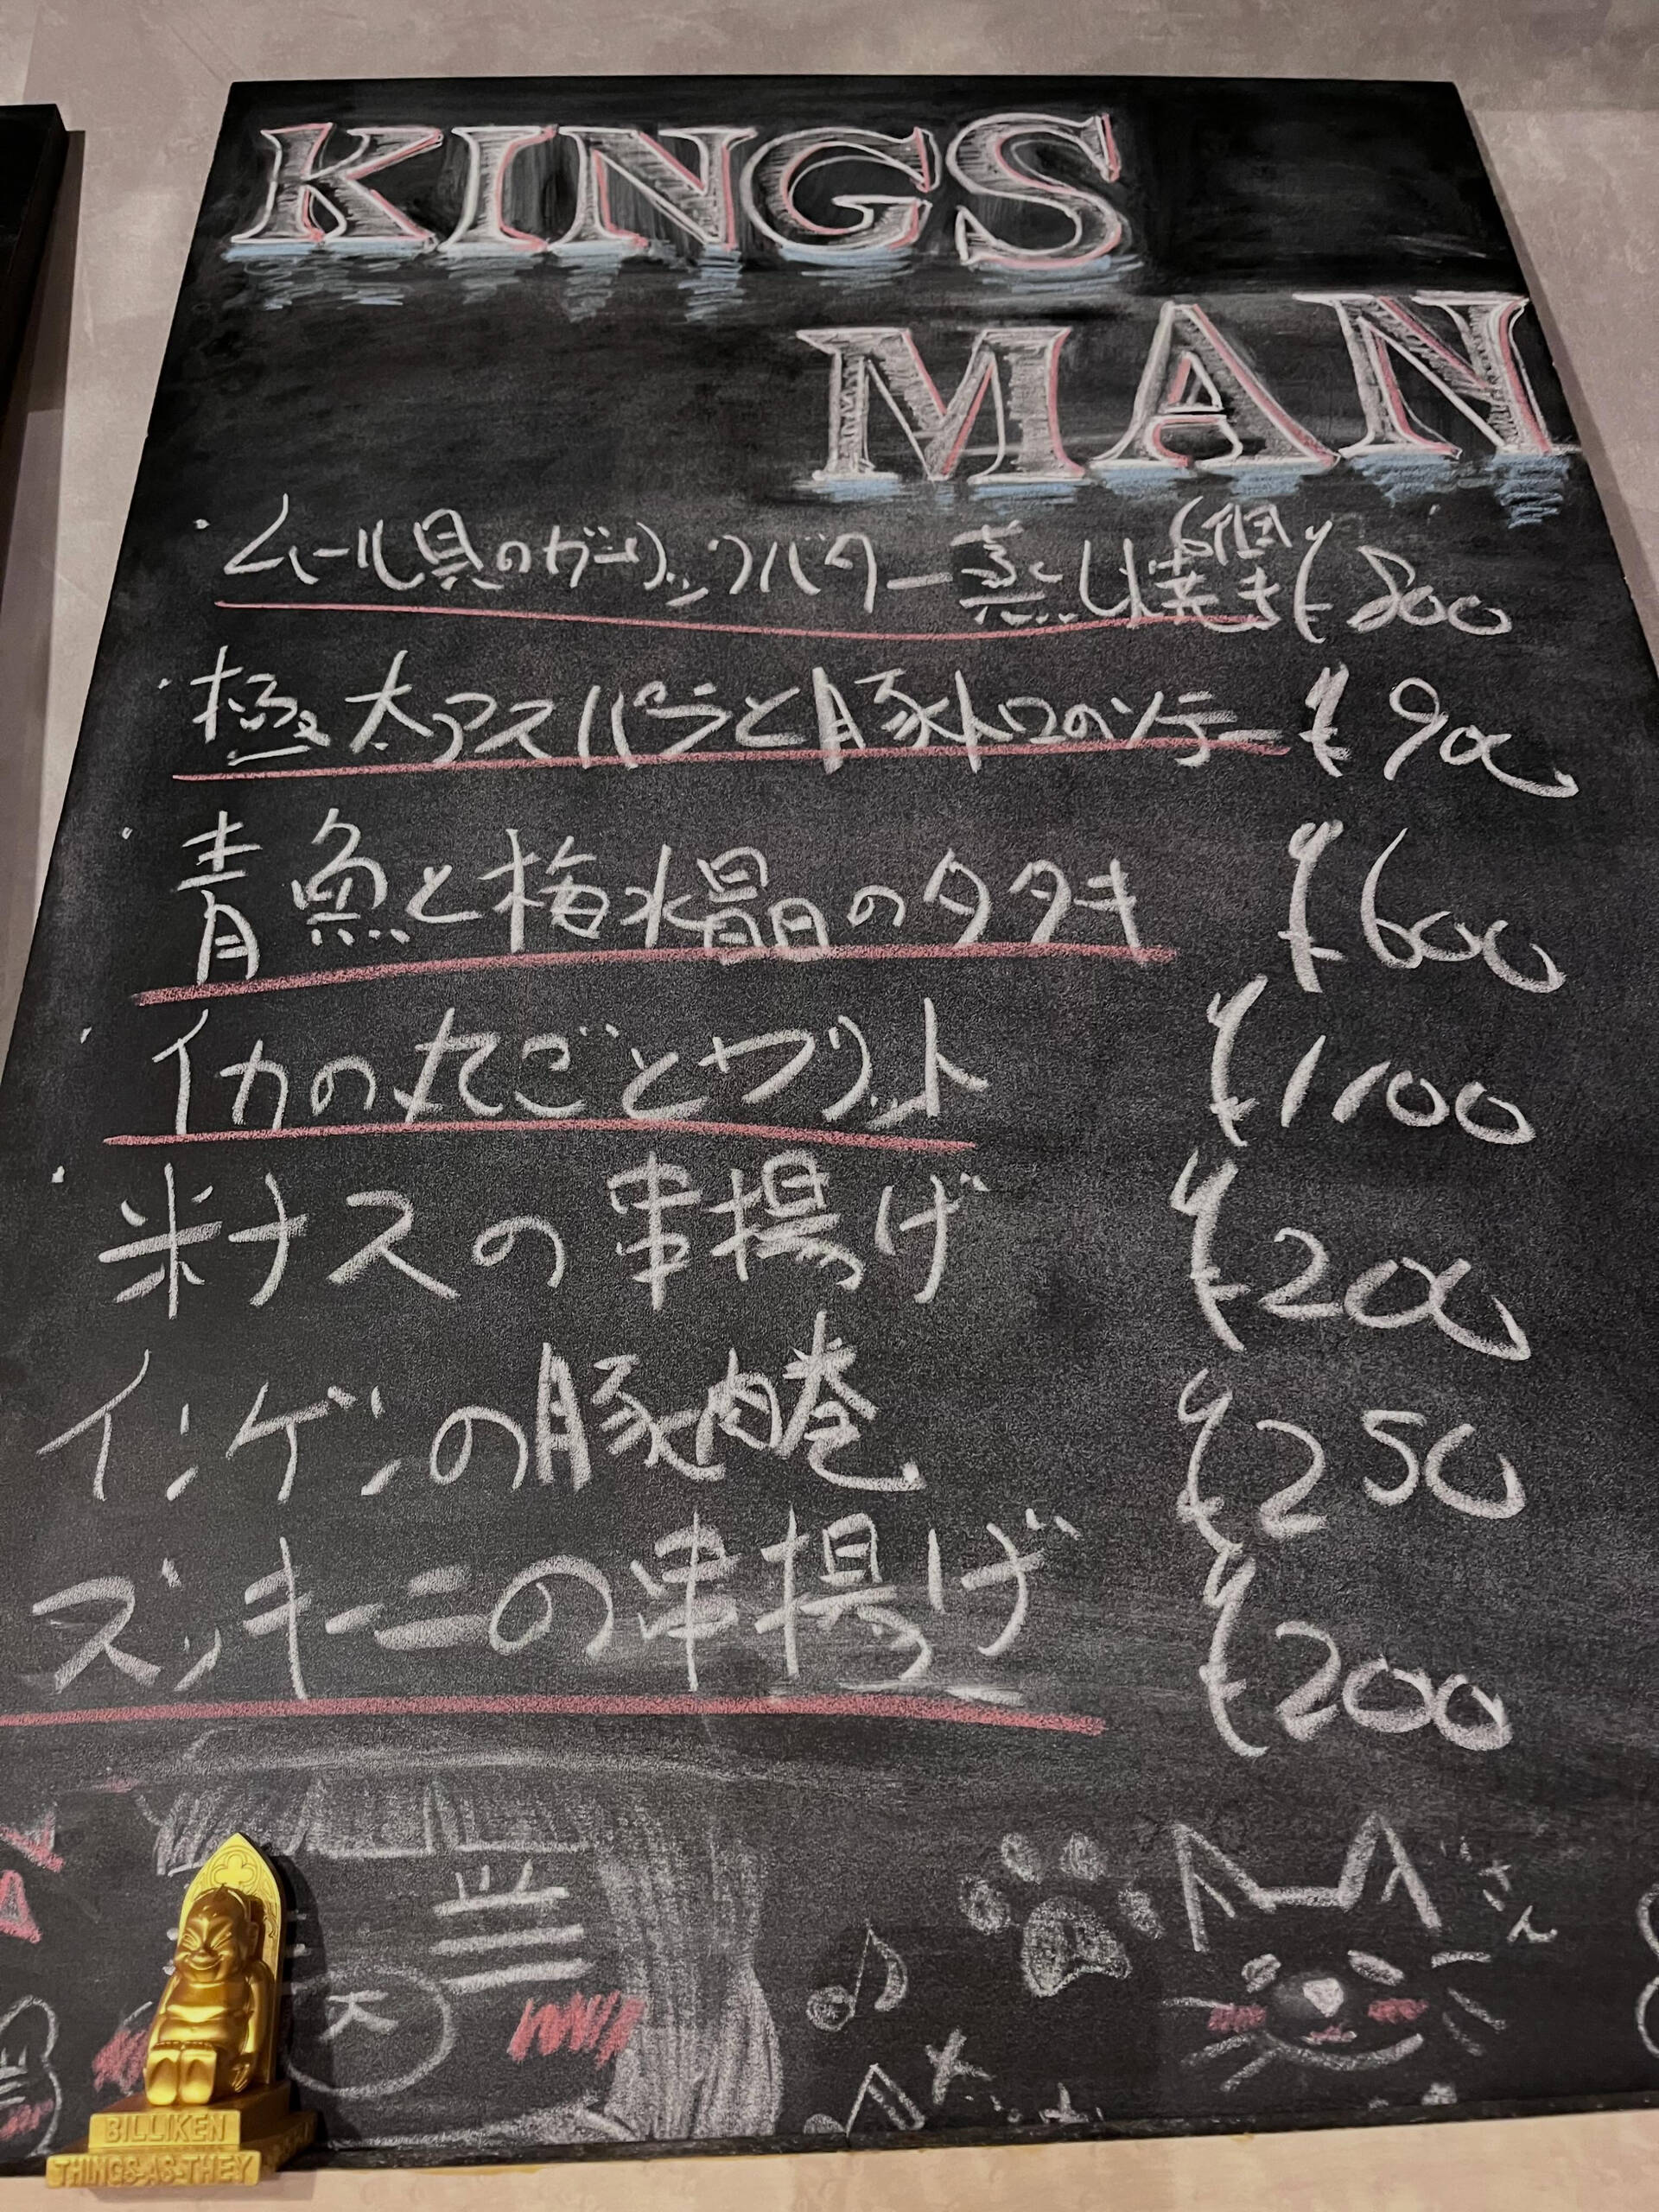 KINGS
MAN
・ムール貝のガーリックバター蒸し焼き 6個 ¥800
・極太アスパラと豚トロのソテー ¥900
・青魚と梅水晶のタタキ ¥600
・イカの丸ごとフリット ¥1100
・米ナスの串揚げ ¥200
インゲンの豚肉巻 ¥250
ズッキーニの串揚げ ¥200
BILLIKEN
THINGS-AS-THEY